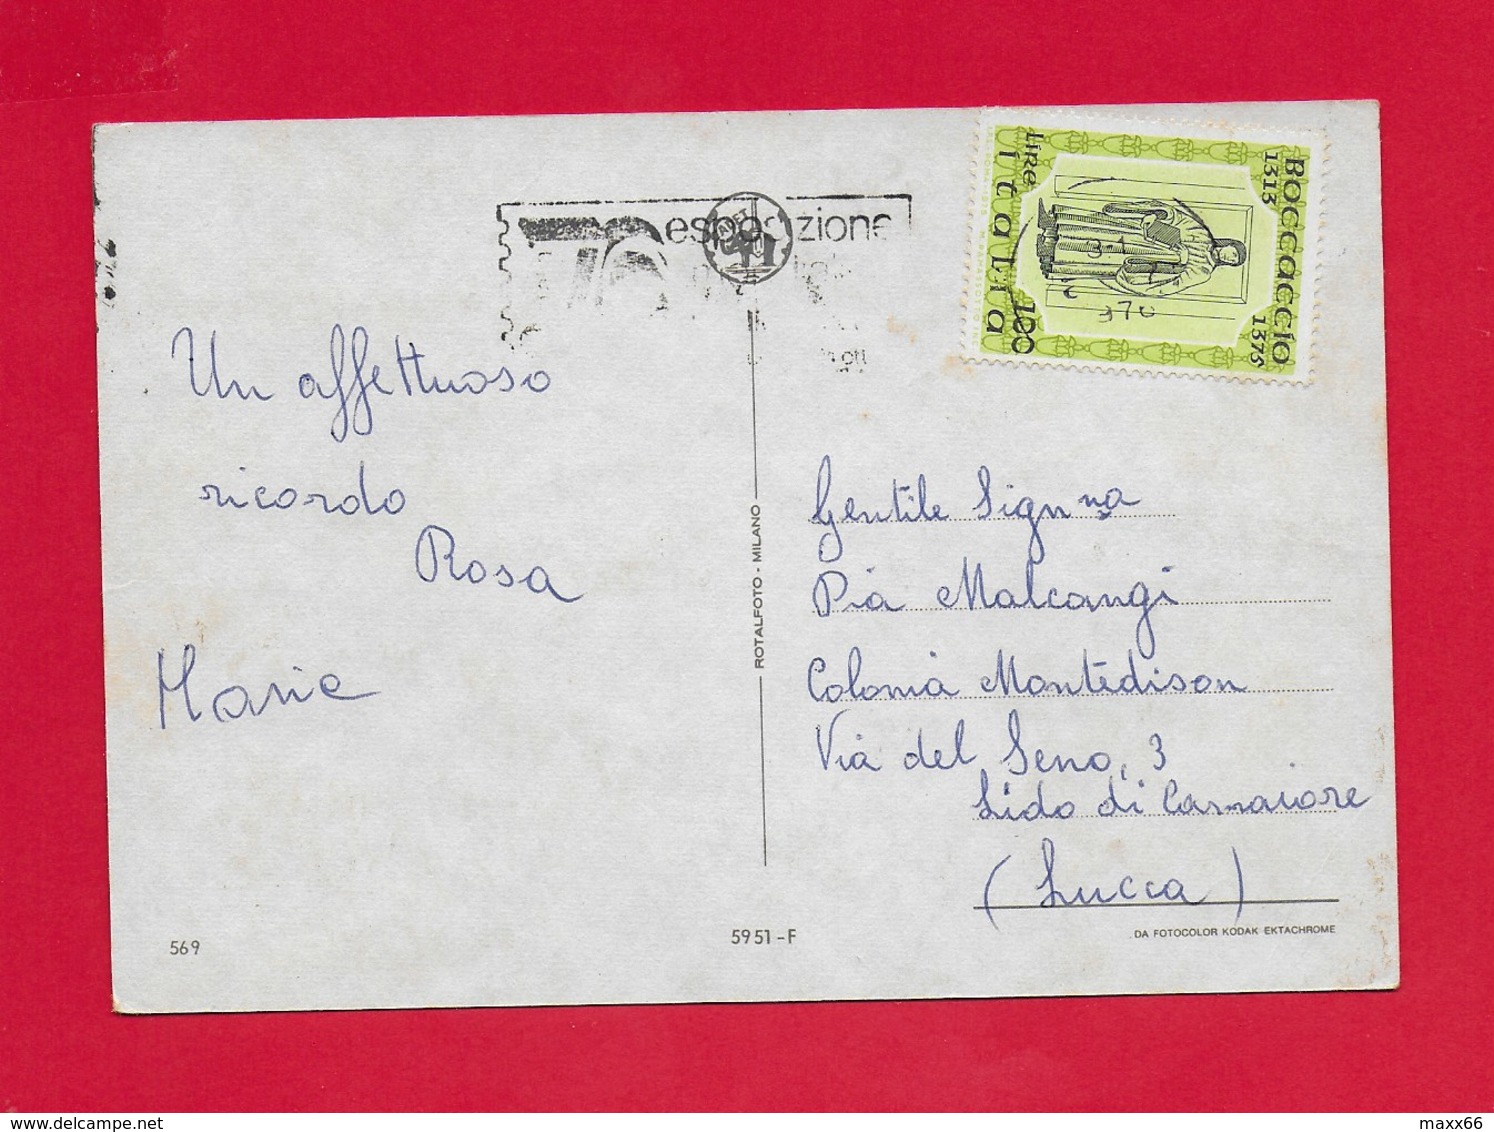 76 esposizione
BOCCACCIO
1313 1375
LIRE 100
ITALIA
Un affettuoso
ricordo
Rosa
Marie
ROTALFOTO - MILANO
Gentile Sign.na
Pia Malcangi
Colonia Montedison
Via del Seno, 3
Lido di Camaiore
(Lucca)
569
5951-F
DA FOTOCOLOR KODAK EKTACHROME
maxx66